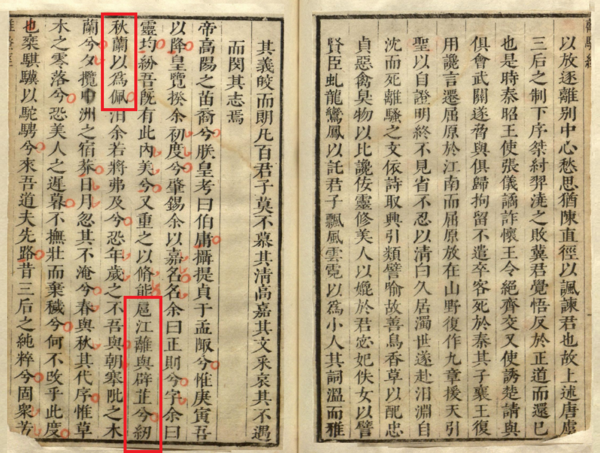 以放逐離別中心愁思猶陳直徑以諷諫君也故上述唐虞
三后之制下序桀紂羿澆之敗冀君覺悟反於正道而還己
也是時秦昭王使張儀譎詐懷王令絕齊交又使誘楚請與
俱會武關遂脅與俱歸拘留不遣卒客死於秦其子襄王復
用讒言遷屈原於江南而屈原放在山野復作九章援天引
聖以自證明終不見省不忍以清白久居濁世遂赴汨淵自
沈而死離騷之文依詩取興引類譬喻故善鳥香草以配忠
貞惡禽臭物以比讒佞靈修美人以媲於君宓妃佚女以譬
賢臣虬龍鸞鳳以託君子飄風雲霓以爲小人其詞溫而雅
其義皎而朗凡百君子莫不慕其清高嘉其文采哀其不遇
而閔其志焉
帝高陽之苗裔兮朕皇考曰伯庸攝提貞于孟陬兮惟庚寅吾
以降皇覽揆余初度兮肇錫余以嘉名名余曰正則兮字余曰
靈均紛吾既有此內美兮又重之以脩能扈江離與辟芷兮紉
秋蘭以爲佩汨余若將弗及兮恐年歲之不吾與朝搴阰之木
蘭兮夕攬中洲之宿莽日月忽其不淹兮春與秋其代序惟草
木之零落兮恐美人之遲暮不撫壯而棄穢兮何不改乎此度
也椉騏驥以駝騁兮來吾道夫先路昔三后之純粹兮固衆芳